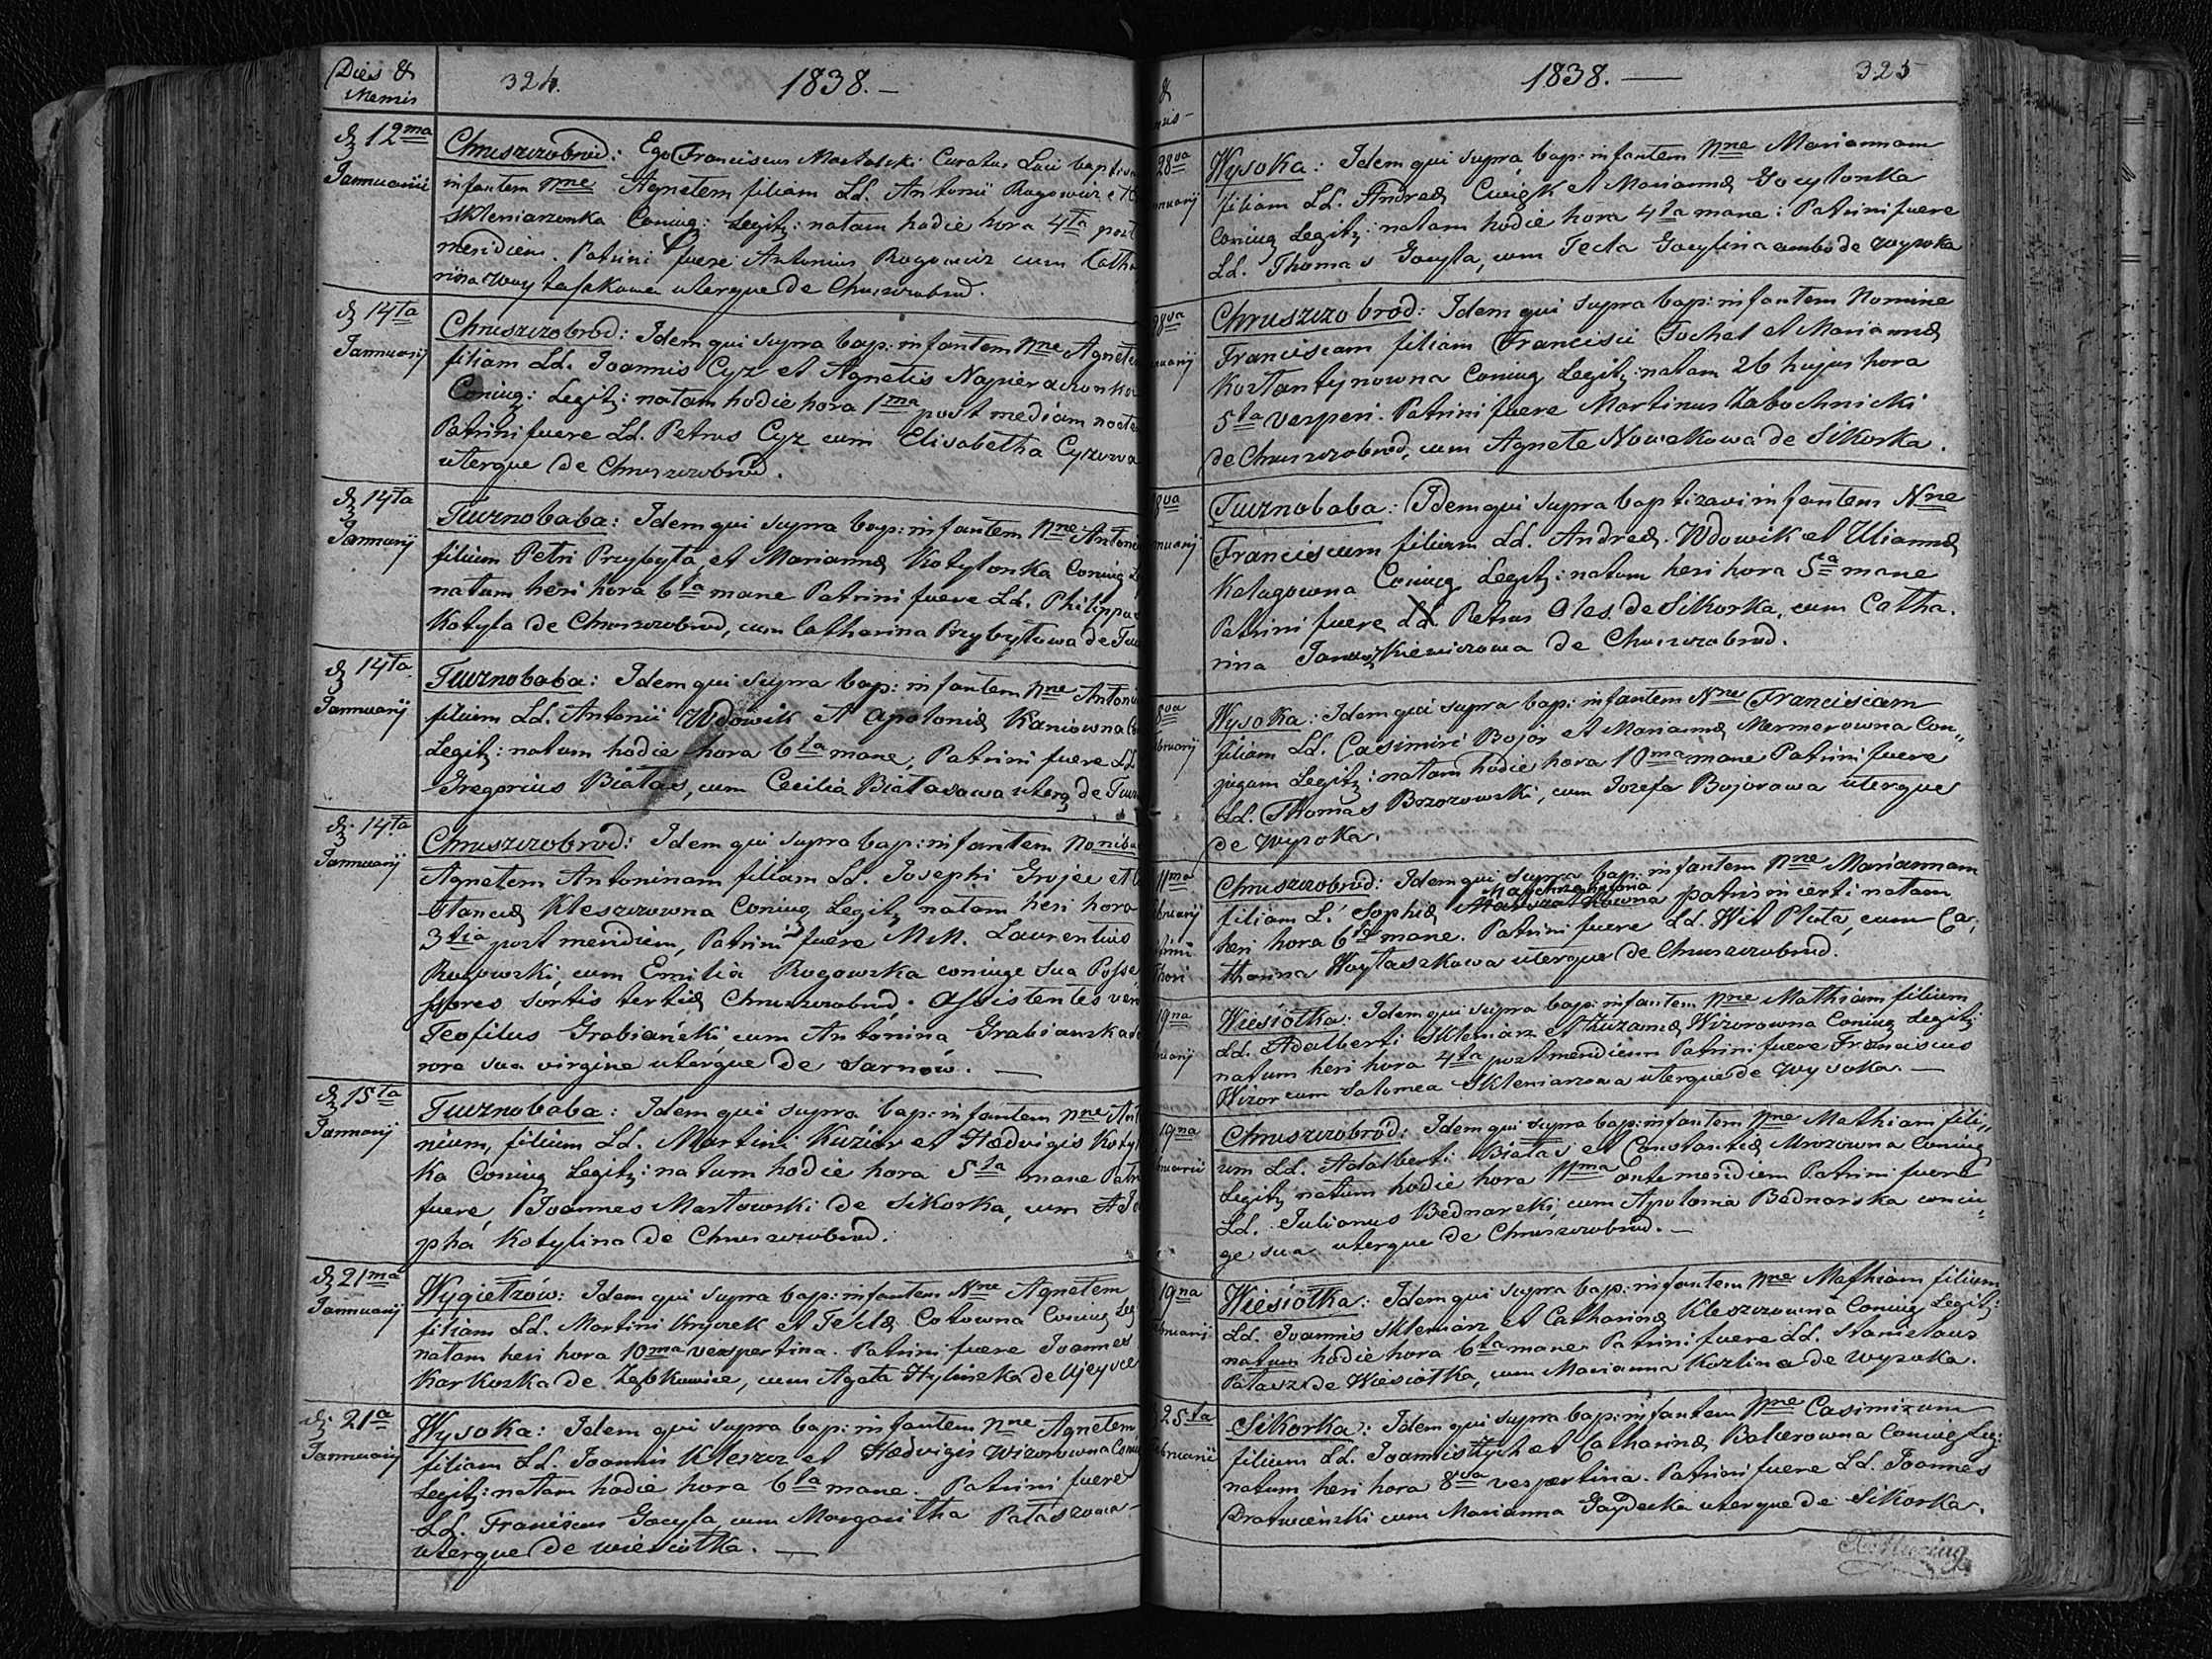 Dies &
Mensis
324.
1838. –
d 12ma
Januarii
Chruszczobrod: Ego Franciscus Curatus Loci
infantem Nne Agnetem filiam LL. Antonii Rogowicz et
Skleniarzonka Coniug: Legitz: natam hodie hora 4ta post
meridiem. Patrini fuere Antonius Rogowicz cum Catha
rina uterque de Chruszczobrod.
d 14ta
Januarij
Chruszczobrod: Idem qui supra bap: infantem Nne Agnete
filiam LL. Joannis Cyz et Agnetis
Coniug: Legitz: natam hodie hora 1ma post mediam nocte
Patrini fuere LL. Petrus Cyz cum Elisabetha Cyzowa
uterque de Chruszczobrod.
d 14ta
Januarij
Tucznobaba: Idem qui supra bap: infantem Nne Antoni
filium Petri Przybyła et Mariannæ Kotylonka Coniug
natum heri hora 6ta mane Patrini fuere LL. Philippus
Kotyła de Chruszczobrod, cum Catharina Przybyłowa de Tuc
d 14ta
Januarij
Tucznobaba: Idem qui supra bap: infantem Nne Antoni
filium LL. Antonii Wdowik et Apoloniæ Kaniowna
Legitz: natum hodie hora 6ta mane, Patrini fuere LL
Gregorius Białas, cum Cecilia Białasowa uterq de Tucz
d. 14ta
Januarij
Chruszczobrod: Idem qui supra bap: infantem
Agnetem Antoninam filiam LL. Josephi et
Kleszczowna Coniug Legitz natam heri hora
3tia post meridiem, Patrini fuere MM. Laurentius
Rogowski, cum Emilia Rogowska coniuge sua Posse
ssores sortis tertiæ Chruszczobrod. Assistentes
Teofilus Grabiański cum Antonina Grabianska
rore sua virgine uterque de Sarnow. —
d 15ta
Januarij
Tucznobaba: Idem qui supra bap: infantem Nne Anto
nium, filium LL. Martini Kuzior et Hedvigis Kotyl
ka Coniug Legitz: natum hodie hora 5ta mane Patri
fuere, Joannes Martowski de Sikorka, cum
pha Kotylina de Chruszczobrod.
d 21ma
Januarij
Wygiełzów: Idem qui supra bap: infantem Nne Agnetem
filiam LL. Martini et Teclæ Cotowna Coniug Leg
natam heri hora 10ma vespertina. Patrini fuere Joannes
Karkoszka de Ząbkowice, cum Agata
d. 21a
Januarij
Wysoka: Idem qui supra bap: infantem Nne Agnetem
filiam LL. Joannis Kleszcz et Hedvigis Wizorowna Coniu
Legitz: natam hodie hora 6ta mane. Patrini fuere
LL. Franciscus Gocyła cum Margaritha Pataszowa
uterque de wiesiołka. —
&
1838. —
325
28va
Wysoka: Idem qui supra bap: infantem Nne Mariannam
filiam LL. Andreæ Cwięk et Mariannæ Gocylonka
Coniug Legitz: natam hodie hora 4ta mane: Patrini fuere
LL. Thomas Gocyła, cum Tecla Gocylina ambo de wysoka
28va
Chruszczobrod: Idem qui supra bap: infantem Nomine
Franciscam filiam Francisci Tochel et Mariannæ
Kostantynowna Coniug Legitz: natam 26 hujus hora
5ta vesperi. Patrini fuere Martinus Zabochnicki
de Chruszczobrod, cum Agnete Nowakowa de Sikorka.
8va
Tucznobaba: Idem qui supra baptizavi infantem Nne
Franciscum filium LL. Andreæ Wdowik et Uliannæ
Kalagowna Coniug Legitz: natum heri hora 5ta mane
Patrini fuere LL. Petrus Oles de Sikorka, cum Catha.
rina Januszkiewiczowa de Chruszczobrod.
8va
Wysoka: Idem qui supra bap: infantem Nne Franciscam
filiam LL. Casimiri Bojor et Mariannæ Mermerowna Con„
jugum Legitz: natam hodie hora 10ma mane Patrini fuere
LL. Thomas Brzozowski, cum Jozefa Bojorowa uterque
de wysoka.
11ma
Chruszczobrod: Idem qui supra bap: infantem Nne Mariannam
filiam L. Sophiæ patris incerti natam
heri hora 6ta mane. Patrini fuere LL. Wit Pluta, cum Ca,
tharina Woytaszkowa uterque de Chruszczobrod.
19na
Wiesiołka. Idem qui supra bap: infantem Nne Mathiam filium
LL. Adalberti Skleniarz et Zuzannæ Wizorowna Coniug Legitz
natum heri hora 4ta post meridiem Patrini fuere Franciscus
Wizor cum Salomea Skleniarzowa uterque de wysoka. —
19na
Chruszczobrod: Idem qui supra bap: infantem Nne Mathiam fili„
um LL. Adalberti Białas et Constantiæ Mrozowna Coniug
Legitz natum hodie hora 11ma ante meridiem Patrini fuere
LL. Julianus Bednarski, cum Apolonia Bednarska coniu„
ge sua uterque de Chruszczobrod. —
19na
Wiesiołka: Idem qui supra bap: infantem Nne Mathiam filium
LL. Joannis Skleniarz et Catharinæ Kleszczowna Coniug Legitz:
natum hodie hora 6ta mane. Patrini fuere LL. Stanislaus
Patasz de Wiesiołka, cum Marianna Kozlina de wysoka.
25ta
Sikorka: Idem qui supra bap: infantem Nne Casimirum
filium LL. Joannis Zych et Catharinæ Balcerowna Coniug Leg:
natum heri hora 8va vespertina. Patrini fuere LL. Joannes
cum Marianna Gaydecka uterque de Sikorka.